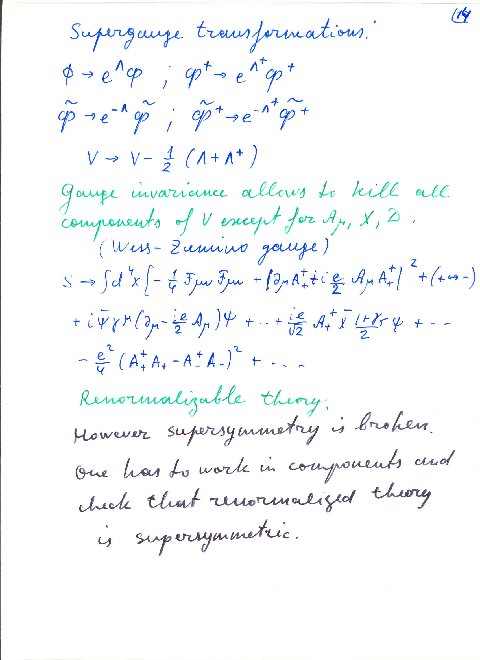 14
Supergauge transformations:
ϕ → e^Λ φ ; φ⁺ → e^Λ⁺ φ⁺
φ̃ → e^-Λ φ̃ ; φ̃⁺ → e^-Λ⁺ φ̃⁺
V → V - 1/2 (Λ + Λ⁺)
Gauge invariance allows to kill all
components of V except for Aμ, χ, D.
(Wess-Zumino gauge)
S → ∫d⁴x [ - 1/4 Fμν Fμν - |∂μA₊⁺ + i e/2 Aμ A₊⁺|² + (+ ↔ -)
+ i Ψ̄ γ^μ (∂μ - ie/2 Aμ) Ψ + ... + ie/√2 A₊⁺ χ̄ (1+γ₅)/2 Ψ + ...
- e²/4 (A₊⁺A₊ - A₋⁺A₋)² + ...
Renormalizable theory.
However supersymmetry is broken.
One has to work in components and
check that renormalized theory
is supersymmetric.